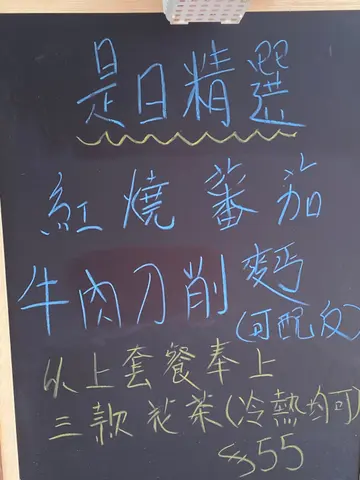 是日精選
紅燒蕃茄
牛肉刀削麵
(可配反)
以上套餐奉上
三款花茶(冷熱均可)
$55